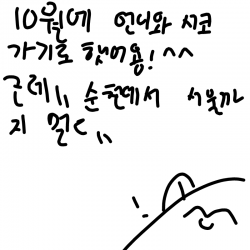 10월에 언니와 시코
가기로 했어용! ^^
근데,, 순천에서 서울까
지 멀다,,